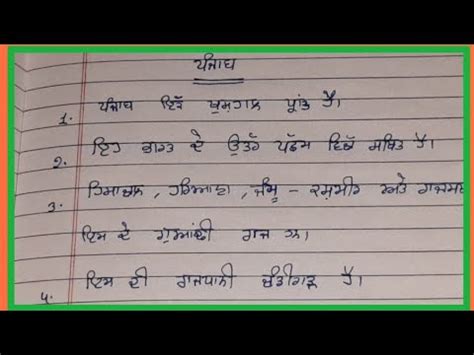 ਪੰਜਾਬ
1. ਪੰਜਾਬ ਇੱਕ ਖੁਸ਼ਹਾਲ ਪ੍ਰਾਂਤ ਹੈ।
2. ਇਹ ਭਾਰਤ ਦੇ ਉੱਤਰ ਪੱਛਮ ਵਿੱਚ ਸਥਿਤ ਹੈ।
3. ਹਿਮਾਚਲ, ਹਰਿਆਣਾ, ਜੰਮੂ - ਕਸ਼ਮੀਰ ਅਤੇ
ਇਸ ਦੇ ਗੁਆਂਢੀ ਰਾਜ ਹਨ।
4. ਇਸ ਦੀ ਰਾਜਧਾਨੀ ਚੰਡੀਗੜ੍ਹ ਹੈ।